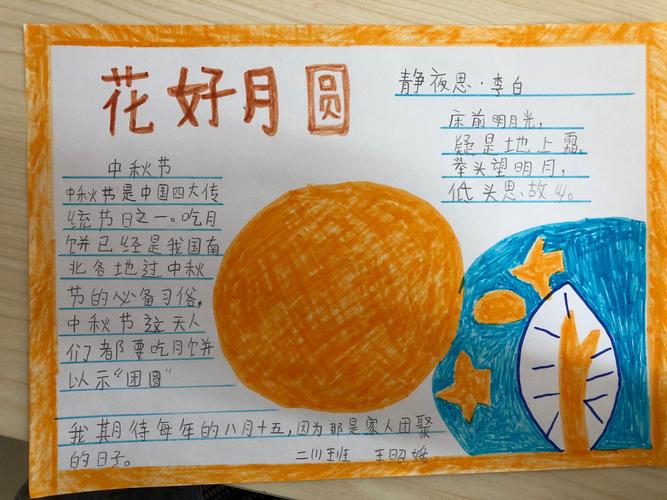 花好月圆
静夜思·李白
床前明月光，
疑是地上霜。
举头望明月，
低头思故
中秋节
中秋节是中国四大传
统节日之一。吃月
饼已经是我国南
北各地过中秋
节的必备习俗，
中秋节这天人
们都要吃月饼
以示“团圆”
我期待每年的八月十五，因为那是家人团聚
的日子。 二川班 王昭